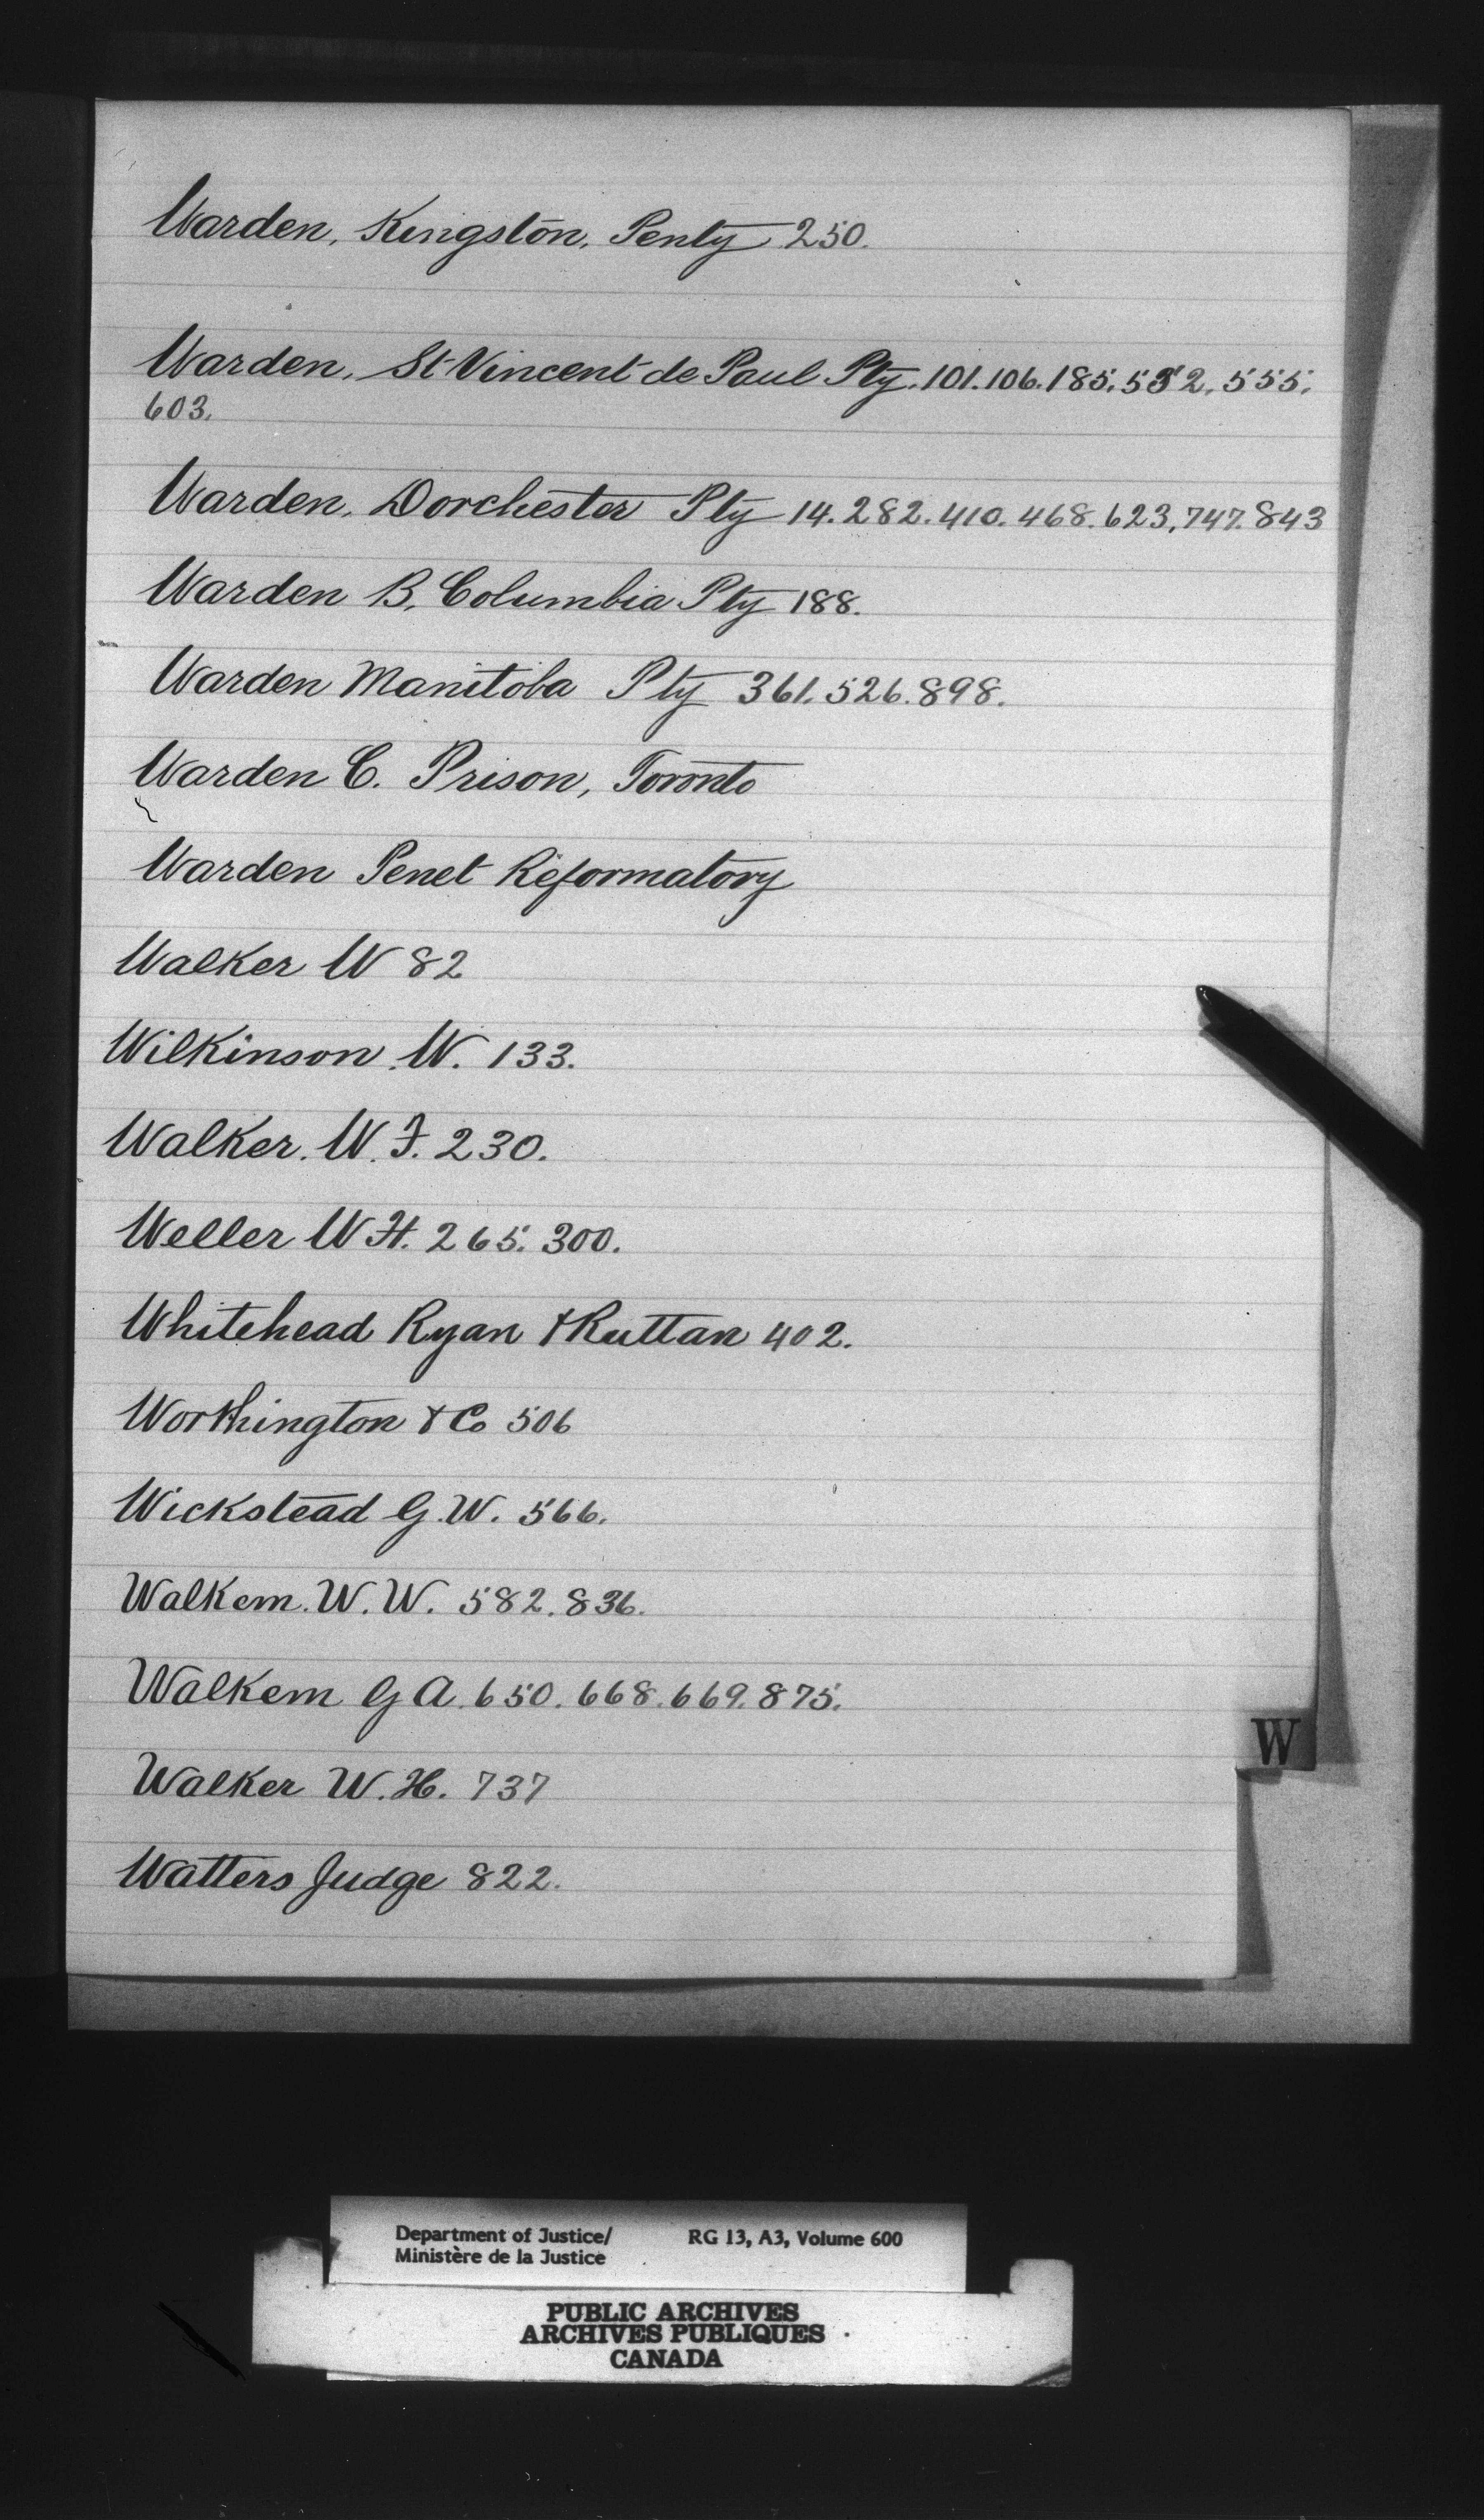 Warden, Kingston, Penty 250.
Warden, St Vincent de Paul Pty. 101. 106. 185. 552. 555.
603.
Warden, Dorchester Pty 14. 282. 410. 468. 623, 747. 843
Warden B. Columbia Pty 188.
Warden Manitoba Pty 361. 526. 898.
Warden C. Prison, Toronto
Warden Penet Reformatory
Walker W 82
Wilkinson. W. 133.
Walker. W. F. 230.
Weller W H. 265. 300.
Whitehead Ryan & Ruttan 402.
Worthington & Co 506
Wickstead G. W. 566.
Walkem. W. W. 582. 836.
Walkem G A. 650. 668. 669. 875.
W
Walker W. H. 737
Watters Judge 822.
Department of Justice/ RG 13, A3, Volume 600
Ministère de la Justice
PUBLIC ARCHIVES
ARCHIVES PUBLIQUES
CANADA